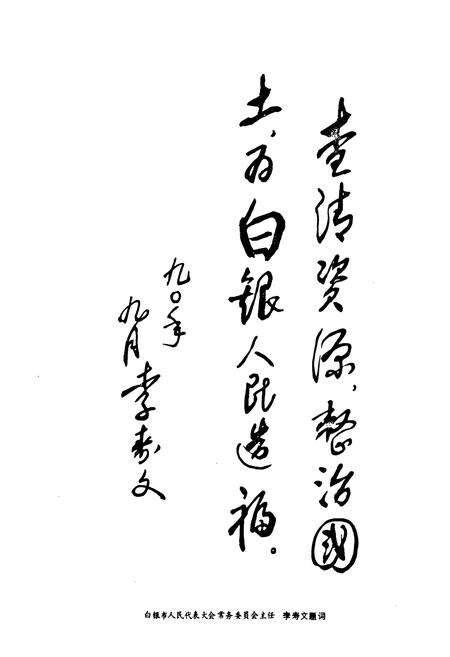 查清资源，整治国
土，为白银人民造福。
九〇年
九月 李寿文
白银市人民代表大会常务委员会主任 李寿文题词